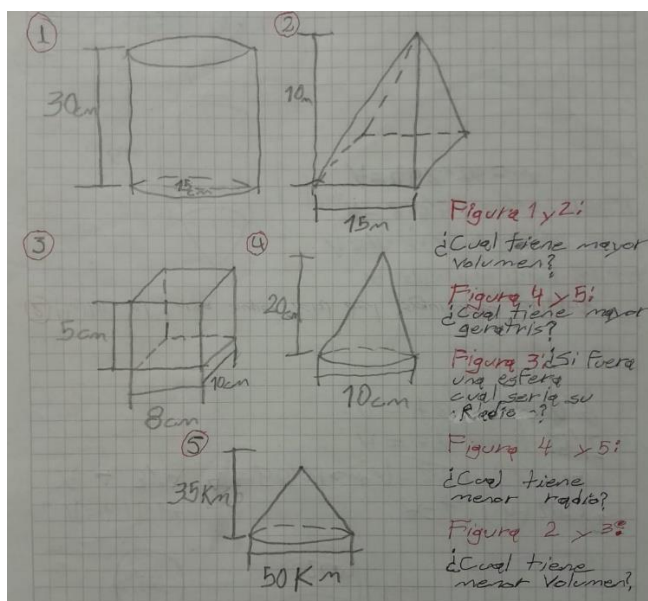 1
30cm
15cm
2
10m
15m
3
5cm
10cm
8cm
4
20cm
10cm
5
35Km
50Km
Figura 1 y 2:
¿Cual tiene mayor
volumen?
Figura 4 y 5:
¿Cual tiene mayor
geratris?
Figura 3: ¿Si fuera
una esfera
cual seria su
Radio?
Figura 4 y 5:
¿Cual tiene
menor radio?
Figura 2 y 3:
¿Cual tiene
menor Volumen?